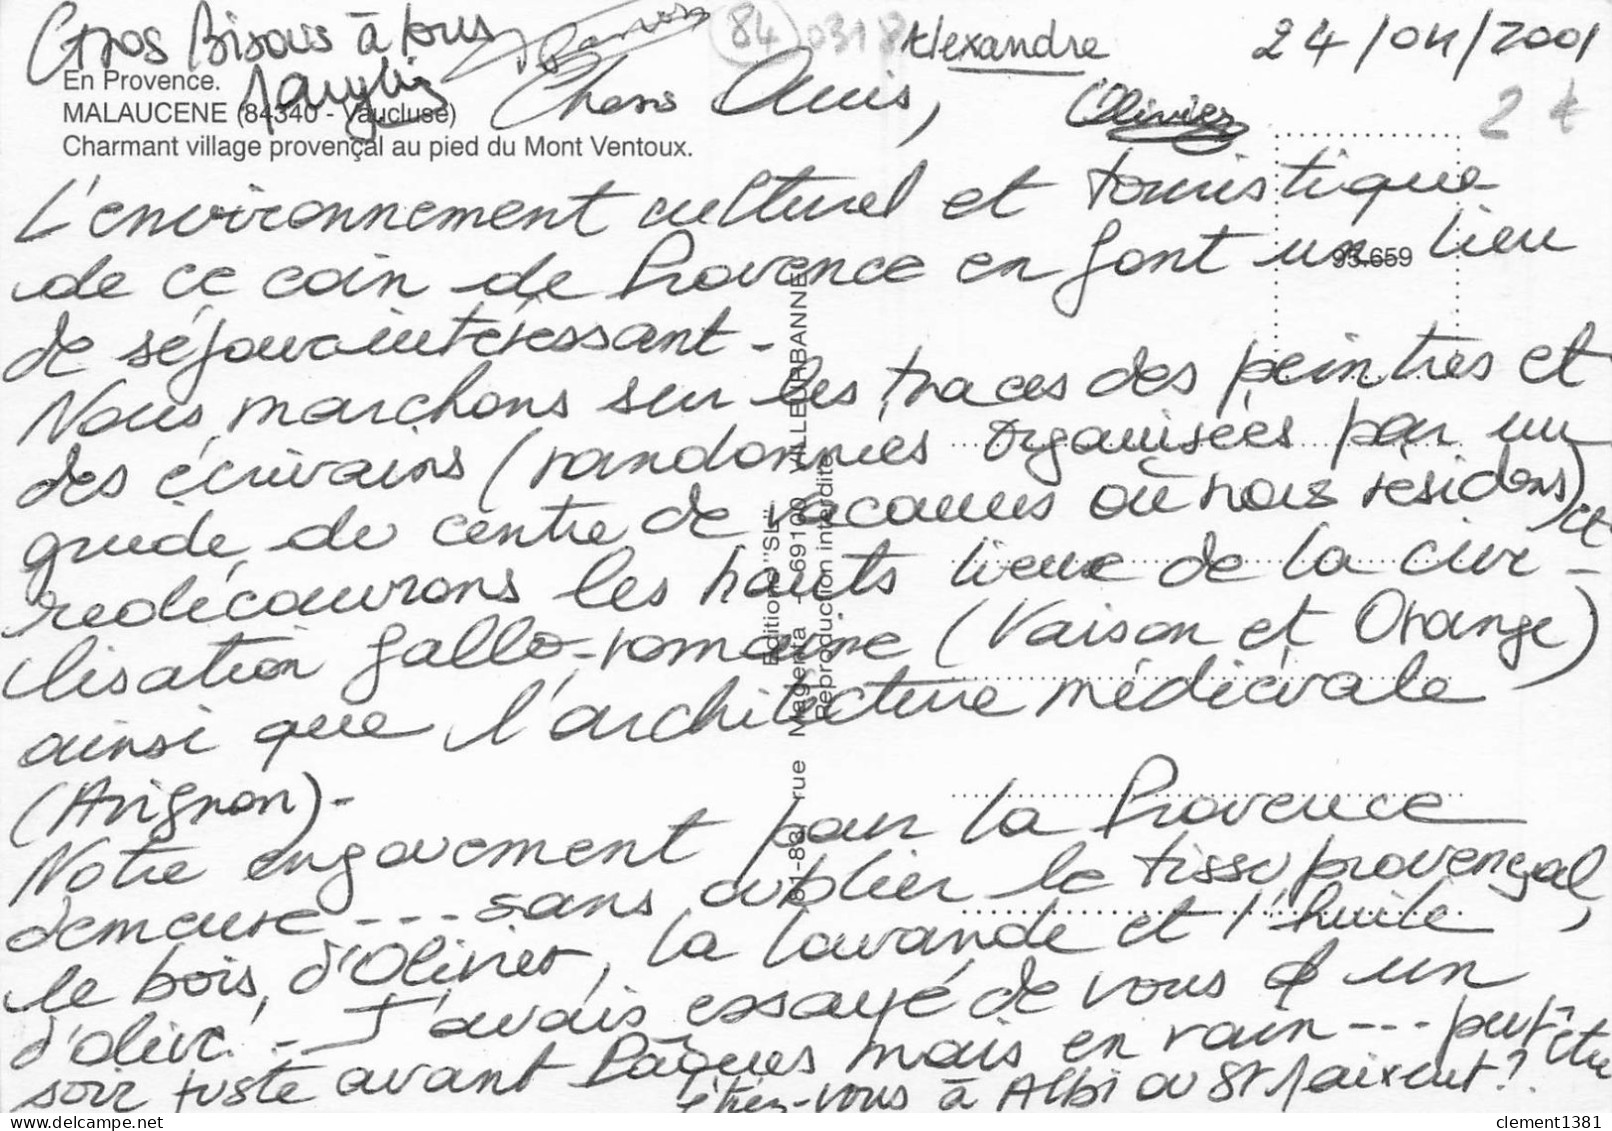 Gros Bisous à tous
84 0318
Alexandre
24/04/2001
En Provence.
MALAUCENE (84340 - Vaucluse)
Charmant village provençal au pied du Mont Ventoux.
Chers Amis,
Olivier
2 €
L'environnement culturel et touristique
93.659
de ce coin de Provence en font un lieu
de séjour intéressant -
Nous marchons sur les traces des peintres et
des écrivains (randonnées organisées par un
guide du centre de vacances où nous résidons) et
redécouvrons les hauts lieux de la civi-
lisation gallo-romaine (Vaison et Orange)
ainsi que l'architecture médiévale
(Avignon) -
Notre engouement pour la Provence
demeure --- sans oublier le tissu provençal,
le bois, d'Olivier, la lavande et l'huile
d'olive. - J'avais essayé de vous un
soir juste avant Pâques mais en vain --- peut-être
étiez-vous à Albi ou St Maixent?
Editions "SL"
81-83, rue Magenta - 69100 VILLEURBANNE
Reproduction interdite
clement1381